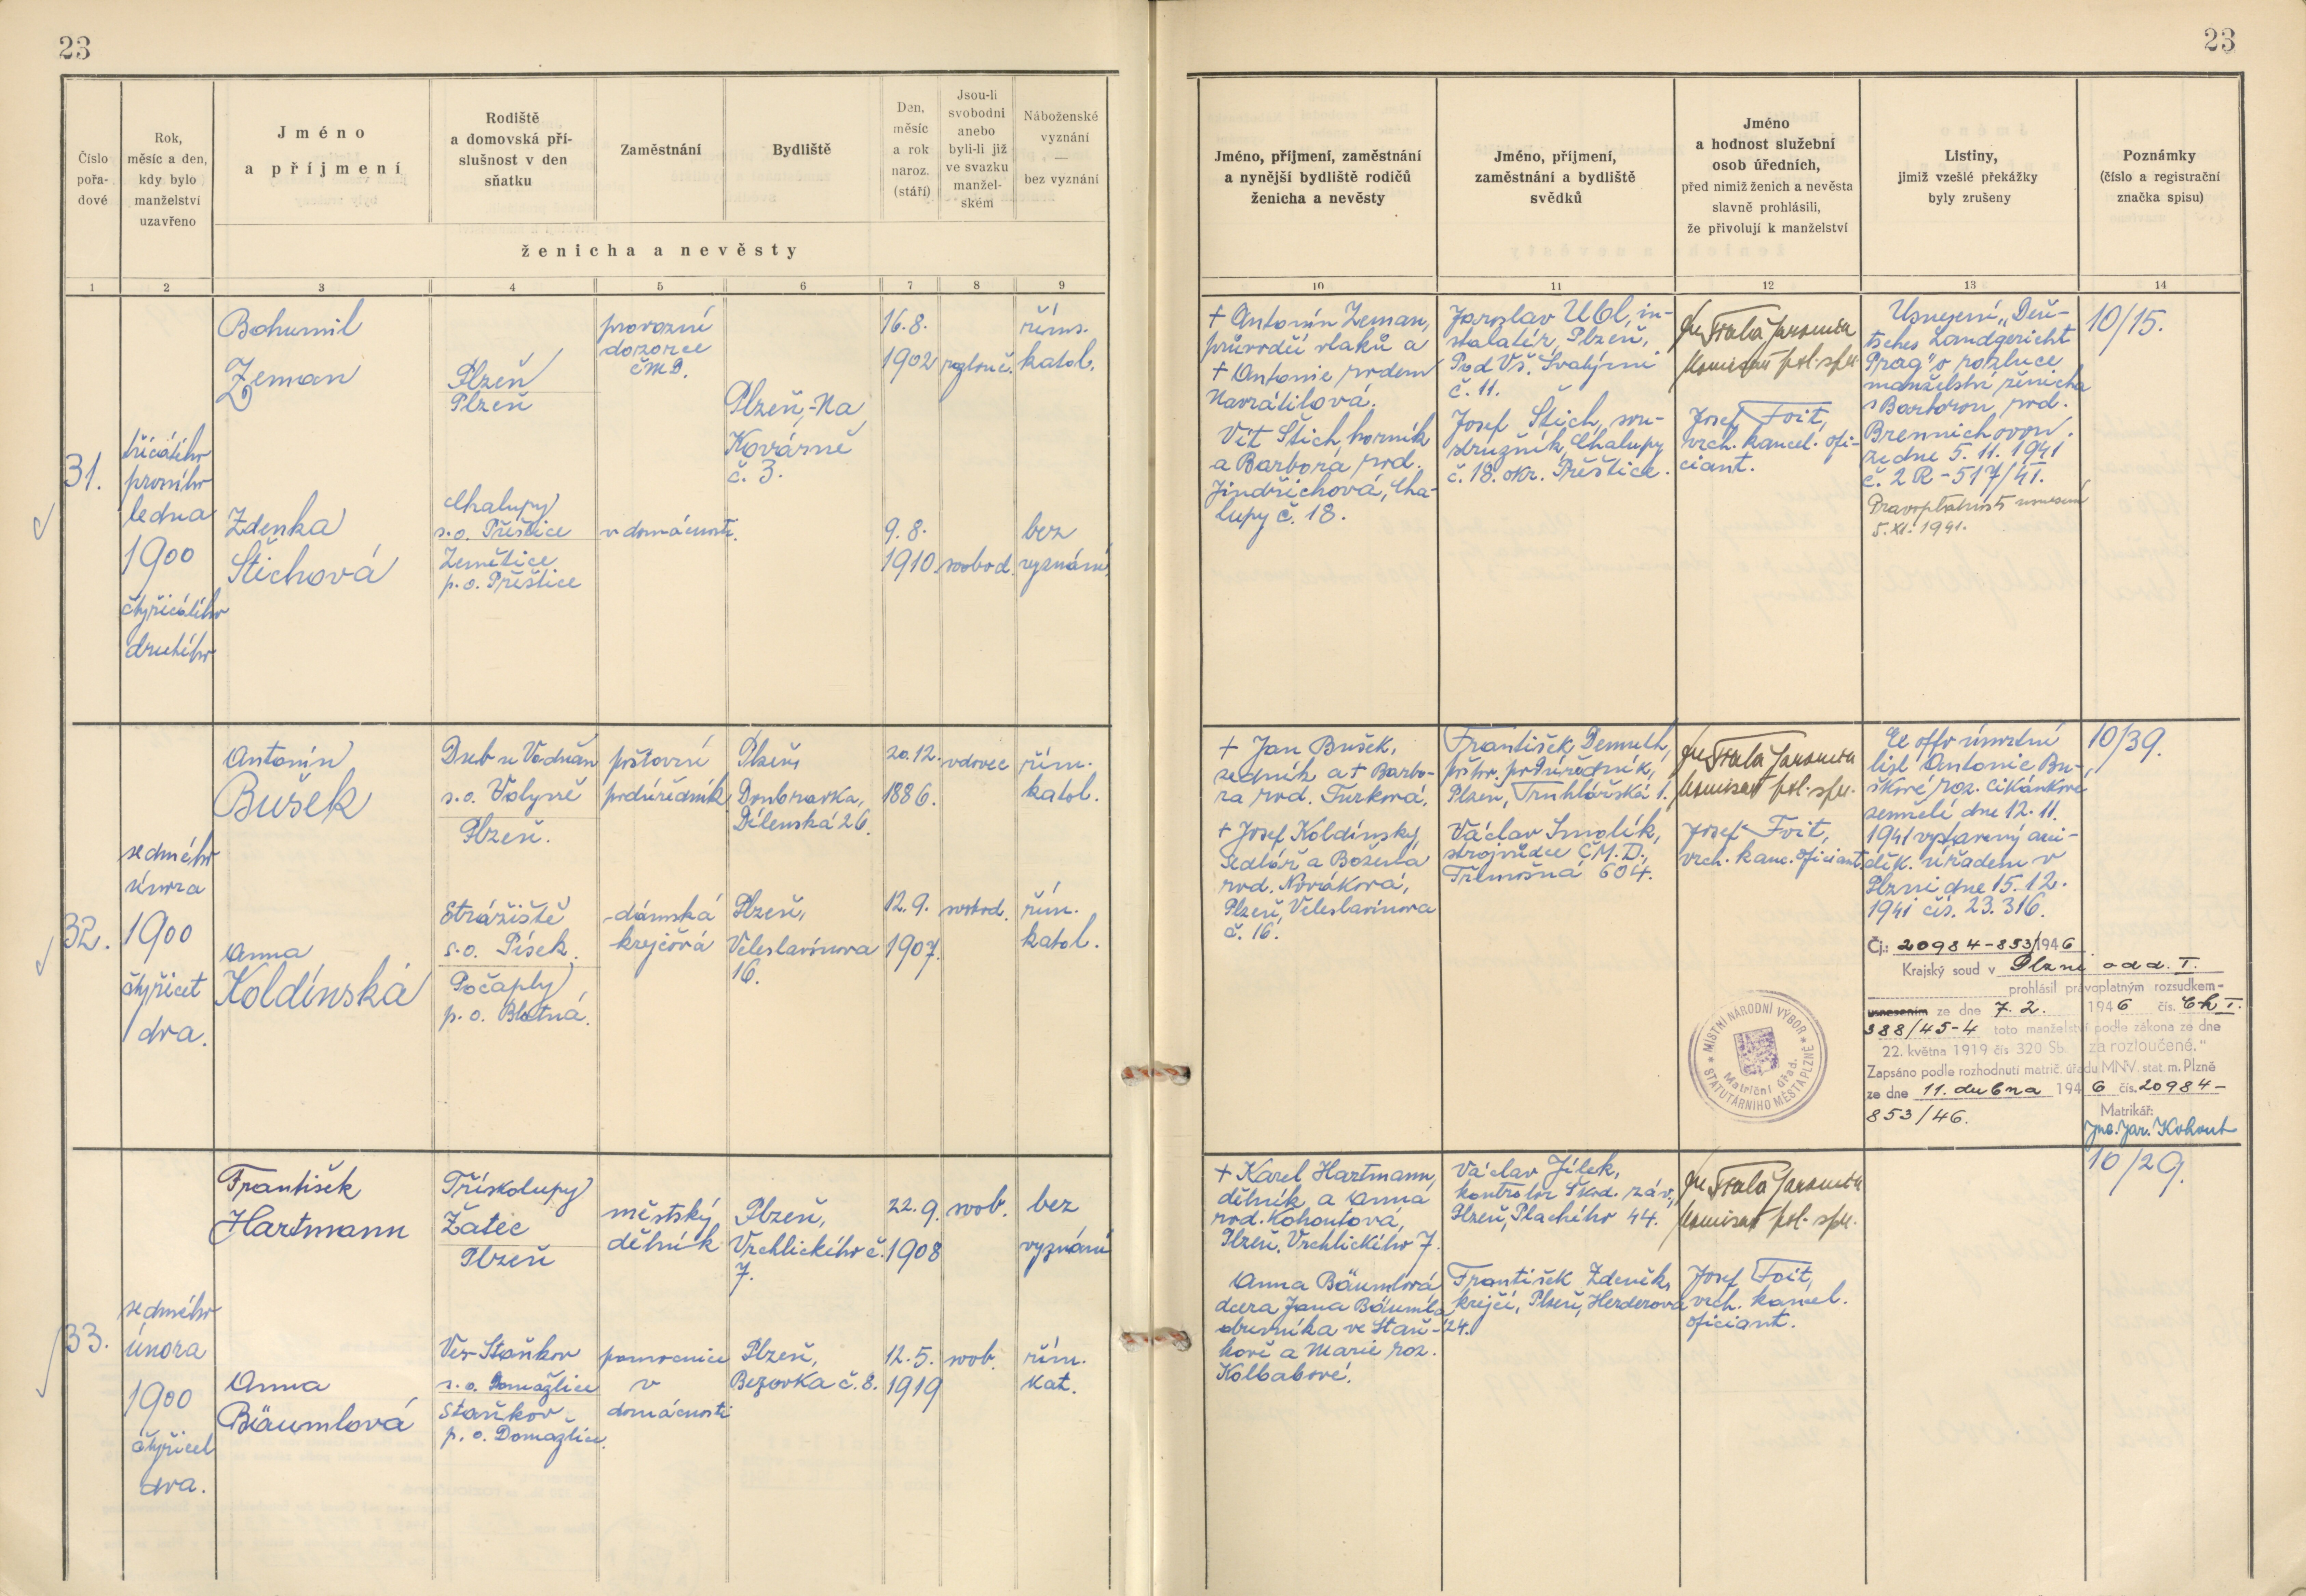 23
23
Číslo
pořa-
dové
Rok,
měsíc a den,
kdy bylo
manželství
uzavřeno
Jméno
a příjmení
Rodiště
a domovská pří-
slušnost v den
sňatku
Zaměstnání
Bydliště
Den,
měsíc
a rok
naroz.
(stáří)
Jsou-li
svobodni
anebo
byli-li již
ve svazku
manžel-
ském
Náboženské
vyznání
—
bez vyznání
ženicha a nevěsty
Jméno, příjmení, zaměstnání
a nynější bydliště rodičů
ženicha a nevěsty
Jméno, příjmení,
zaměstnání a bydliště
svědků
Jméno
a hodnost služební
osob úředních,
před nimiž ženich a nevěsta
slavně prohlásili,
že přivolují k manželství
Listiny,
jimiž vzešlé překážky
byly zrušeny
Poznámky
(číslo a registrační
značka spisu)
1
2
3
4
5
6
7
8
9
10
11
12
13
14
31.
třicátého
prvního
ledna
1900
čtyřicátého
druhého
Bohumil
Zeman
Plzeň
Plzeň
provozní
dozorce
ČMD.
Plzeň, Na
Kovárně
č. 3.
16.8.
1902
rozlouč.
říms.
katol.
Zdenka
Štichová
Chalupy
s.o. Přeštice
Zemětice
p.o. Přeštice
v domácnosti.
9.8.
1910
svobod.
bez
vyznání
+ Antonín Zeman,
průvodčí vlaků a
+ Antonie rodem
Navrátilová.
Vít Štich, horník
a Barbora rod.
Jindřichová, Cha-
lupy č. 18.
Jaroslav Ubl, in-
stalatér, Plzeň,
Pod Vš. Svatými
č. 11.
Josef Štich, sou-
stružník, Chalupy
č. 18. okr. Přeštice.
komisař pol. spr.
Josef Foit,
vrch. kancel. ofi-
ciant.
Usnesení „Deu-
tsches Landgericht
Prag" o rozluce
manželství ženicha
s Barborou, rod.
Brennichovou.
ze dne 5. 11. 1941
č. 2 R - 517/41.
Pravoplatnost usnesení
5. XI. 1941.
10/15.
32.
sedmého
února
1900
čtyřicet
dva.
Antonín
Bušek
Dub u Vodňan
s.o. Volyně
Plzeň.
poštovní
podúředník
Plzeň
Doubravka,
Dílenská 26.
20.12.
1886.
vdovec
řím.
katol.
Anna
Koldínská
Strážiště
s.o. Písek.
Počaply
p.o. Blatná.
dámská
krejčová
Plzeň,
Veleslavínova
16.
12.9.
1907.
svobod.
řím.
katol.
+ Jan Bušek,
sedník a + Barbo-
ra rod. Turková.
+ Josef Koldínský
sedlář a Božena
rod. Nováková,
Plzeň, Veleslavínova
č. 16.
František Demuth,
poštov. podúředník,
Plzeň, Truhlářská 1.
Václav Smolík,
strojvůdce Č.M.D.,
Třemošná 604.
komisař pol. spr.
Josef Foit,
vrch. kanc. oficiant.
MÍSTNÍ NÁRODNÍ VÝBOR
STATUTÁRNÍHO MĚSTA PLZNĚ
Matriční úřad.
Ex offo úmrtní
list Antonie Bu-
škové roz. Cikánkové
zemřelé dne 12. 11.
1941 vystavený arci-
děk. úřadem v
Plzni dne 15. 12.
1941 čís. 23.316.
Čj.: 20984-853/1946
Krajský soud v Plzni odd. I.
prohlásil právoplatným rozsudkem-
usnesením ze dne 7. 2. 1946 čís. Ck I.
388/45-4 toto manželství podle zákona ze dne
22. května 1919 čís 320 Sb. „za rozloučené."
Zapsáno podle rozhodnutí matrič. úřadu MNV. stat. m. Plzně
ze dne 11. dubna 1946 čís. 20984-
853/46.
Matrikář:
Jar. Kohout
10/39.
33.
sedmého
února
1900
čtyřicet
dva.
František
Hartmann
Třískolupy
Žatec
Plzeň
městský
dělník
Plzeň,
Vrchlického č.
7.
22.9.
1908
svob.
bez
vyznání
Anna
Bäumlová
Ves-Staňkov
s.o. Domažlice
Staňkov
p.o. Domažlice.
pomocnice
v
domácnosti
Plzeň,
Bezovka č. 8.
12.5.
1919
svob.
řím.
kat.
+ Karel Hartmann,
dělník a Anna
rod. Kohoutová,
Plzeň, Vrchlického 7.
Anna Bäumlová
dcera Jana Bäumla
obuvníka ve Staň-
kově a Marie roz.
Kolbabové.
Václav Jílek,
kontrolor Škod. záv.,
Plzeň, Plachého 44.
František Zdeněk,
krejčí, Plzeň, Herderova
24.
komisař pol. spr.
Josef Foit,
vrch. kancel.
oficiant.
10/29.